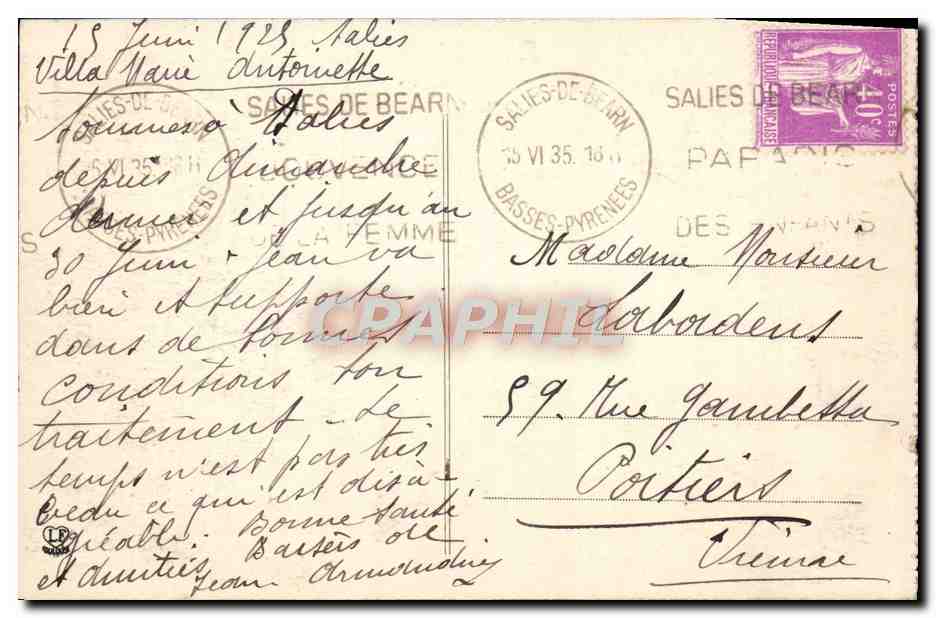 15 Juin 1935 Salies
Villa Marie Antoinette
sommes à Salies
depuis dimanche
dernier et jusqu'au
30 Juin. Jean va
bien et supporte
dans de bonnes
conditions son
traitement. Le
temps n'est pas très
ce qui est désa-
gréable. Bonne santé
et amitiés Baisers de
Jean
SALIES-DE-BEARN
BASSES-PYRENEES
SALIES DE BEARN
DE LA FEMME
SALIES-DE-BEARN
VI 35.
BASSES-PYRENEES
SALIES DE BEAR
PARADIS
DES ENFANTS
REPUBLIQUE FRANCAISE
POSTES
40c
Madame Monsieur
Labordens
59. Rue Gambetta
Poitiers
Vienne
CPAPHIL
LF